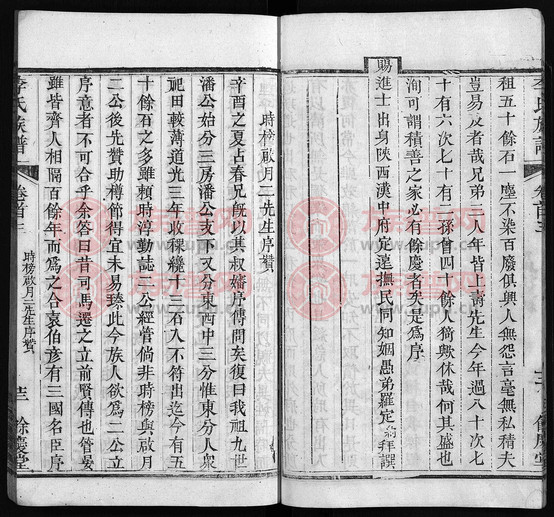 祖五十餘石一塵不染百廢俱興人無怨言毫無私積夫
豈易及者哉兄弟二人年皆上壽先生今年過八十次七
十有六次七十有二孫曾四十餘人猗歟休哉何其盛也
洵可謂積善之家必有餘慶者矣是爲序
賜進士出身陝西漢中府定遠撫民同知姻愚弟羅定 拜譔
時榜啟月二先生序贊
辛酉之夏占春兄旣以其叔 序傳問矣復曰我祖九世
潘公始分三房潘公支下又分東西中三分惟東分人衆
祀田較薄道光三年收稞纔十三石入不符出迄今有五
十餘石之多雖賴時淳勤誌二公經管倘非時榜與啟月
二公後先贊助樽節得宜未易臻此今族人欲爲二公立
序意者不可合乎余答曰昔司馬遷之立前賢傳也管晏
雖皆齊人相隔百餘年而爲之合袁伯彥有三國名臣序
李氏族譜
卷首三
時榜啟月二先生序贊
餘慶堂